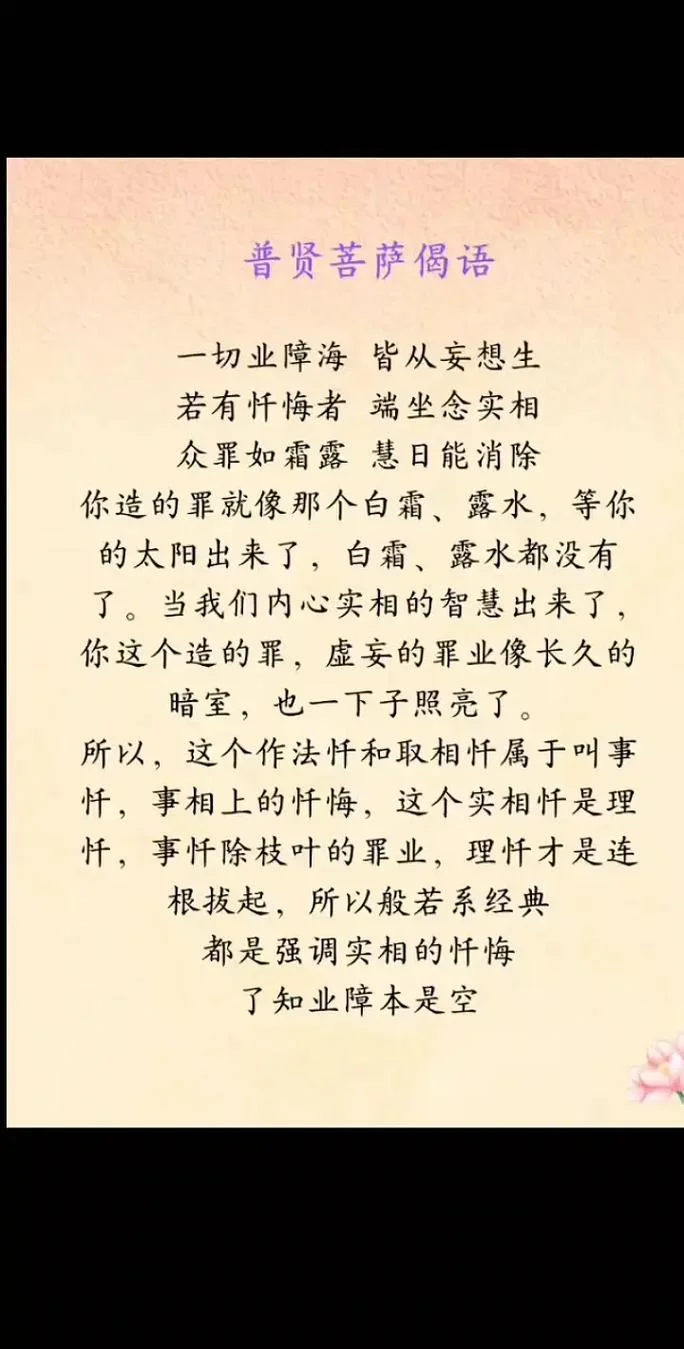 普贤菩萨偈语
一切业障海 皆从妄想生
若有忏悔者 端坐念实相
众罪如霜露 慧日能消除
你造的罪就像那个白霜、露水，等你
的太阳出来了，白霜、露水都没有
了。当我们内心实相的智慧出来了，
你这个造的罪，虚妄的罪业像长久的
暗室，也一下子照亮了。
所以，这个作法忏和取相忏属于叫事
忏，事相上的忏悔，这个实相忏是理
忏，事忏除枝叶的罪业，理忏才是连
根拔起，所以般若系经典
都是强调实相的忏悔
了知业障本是空